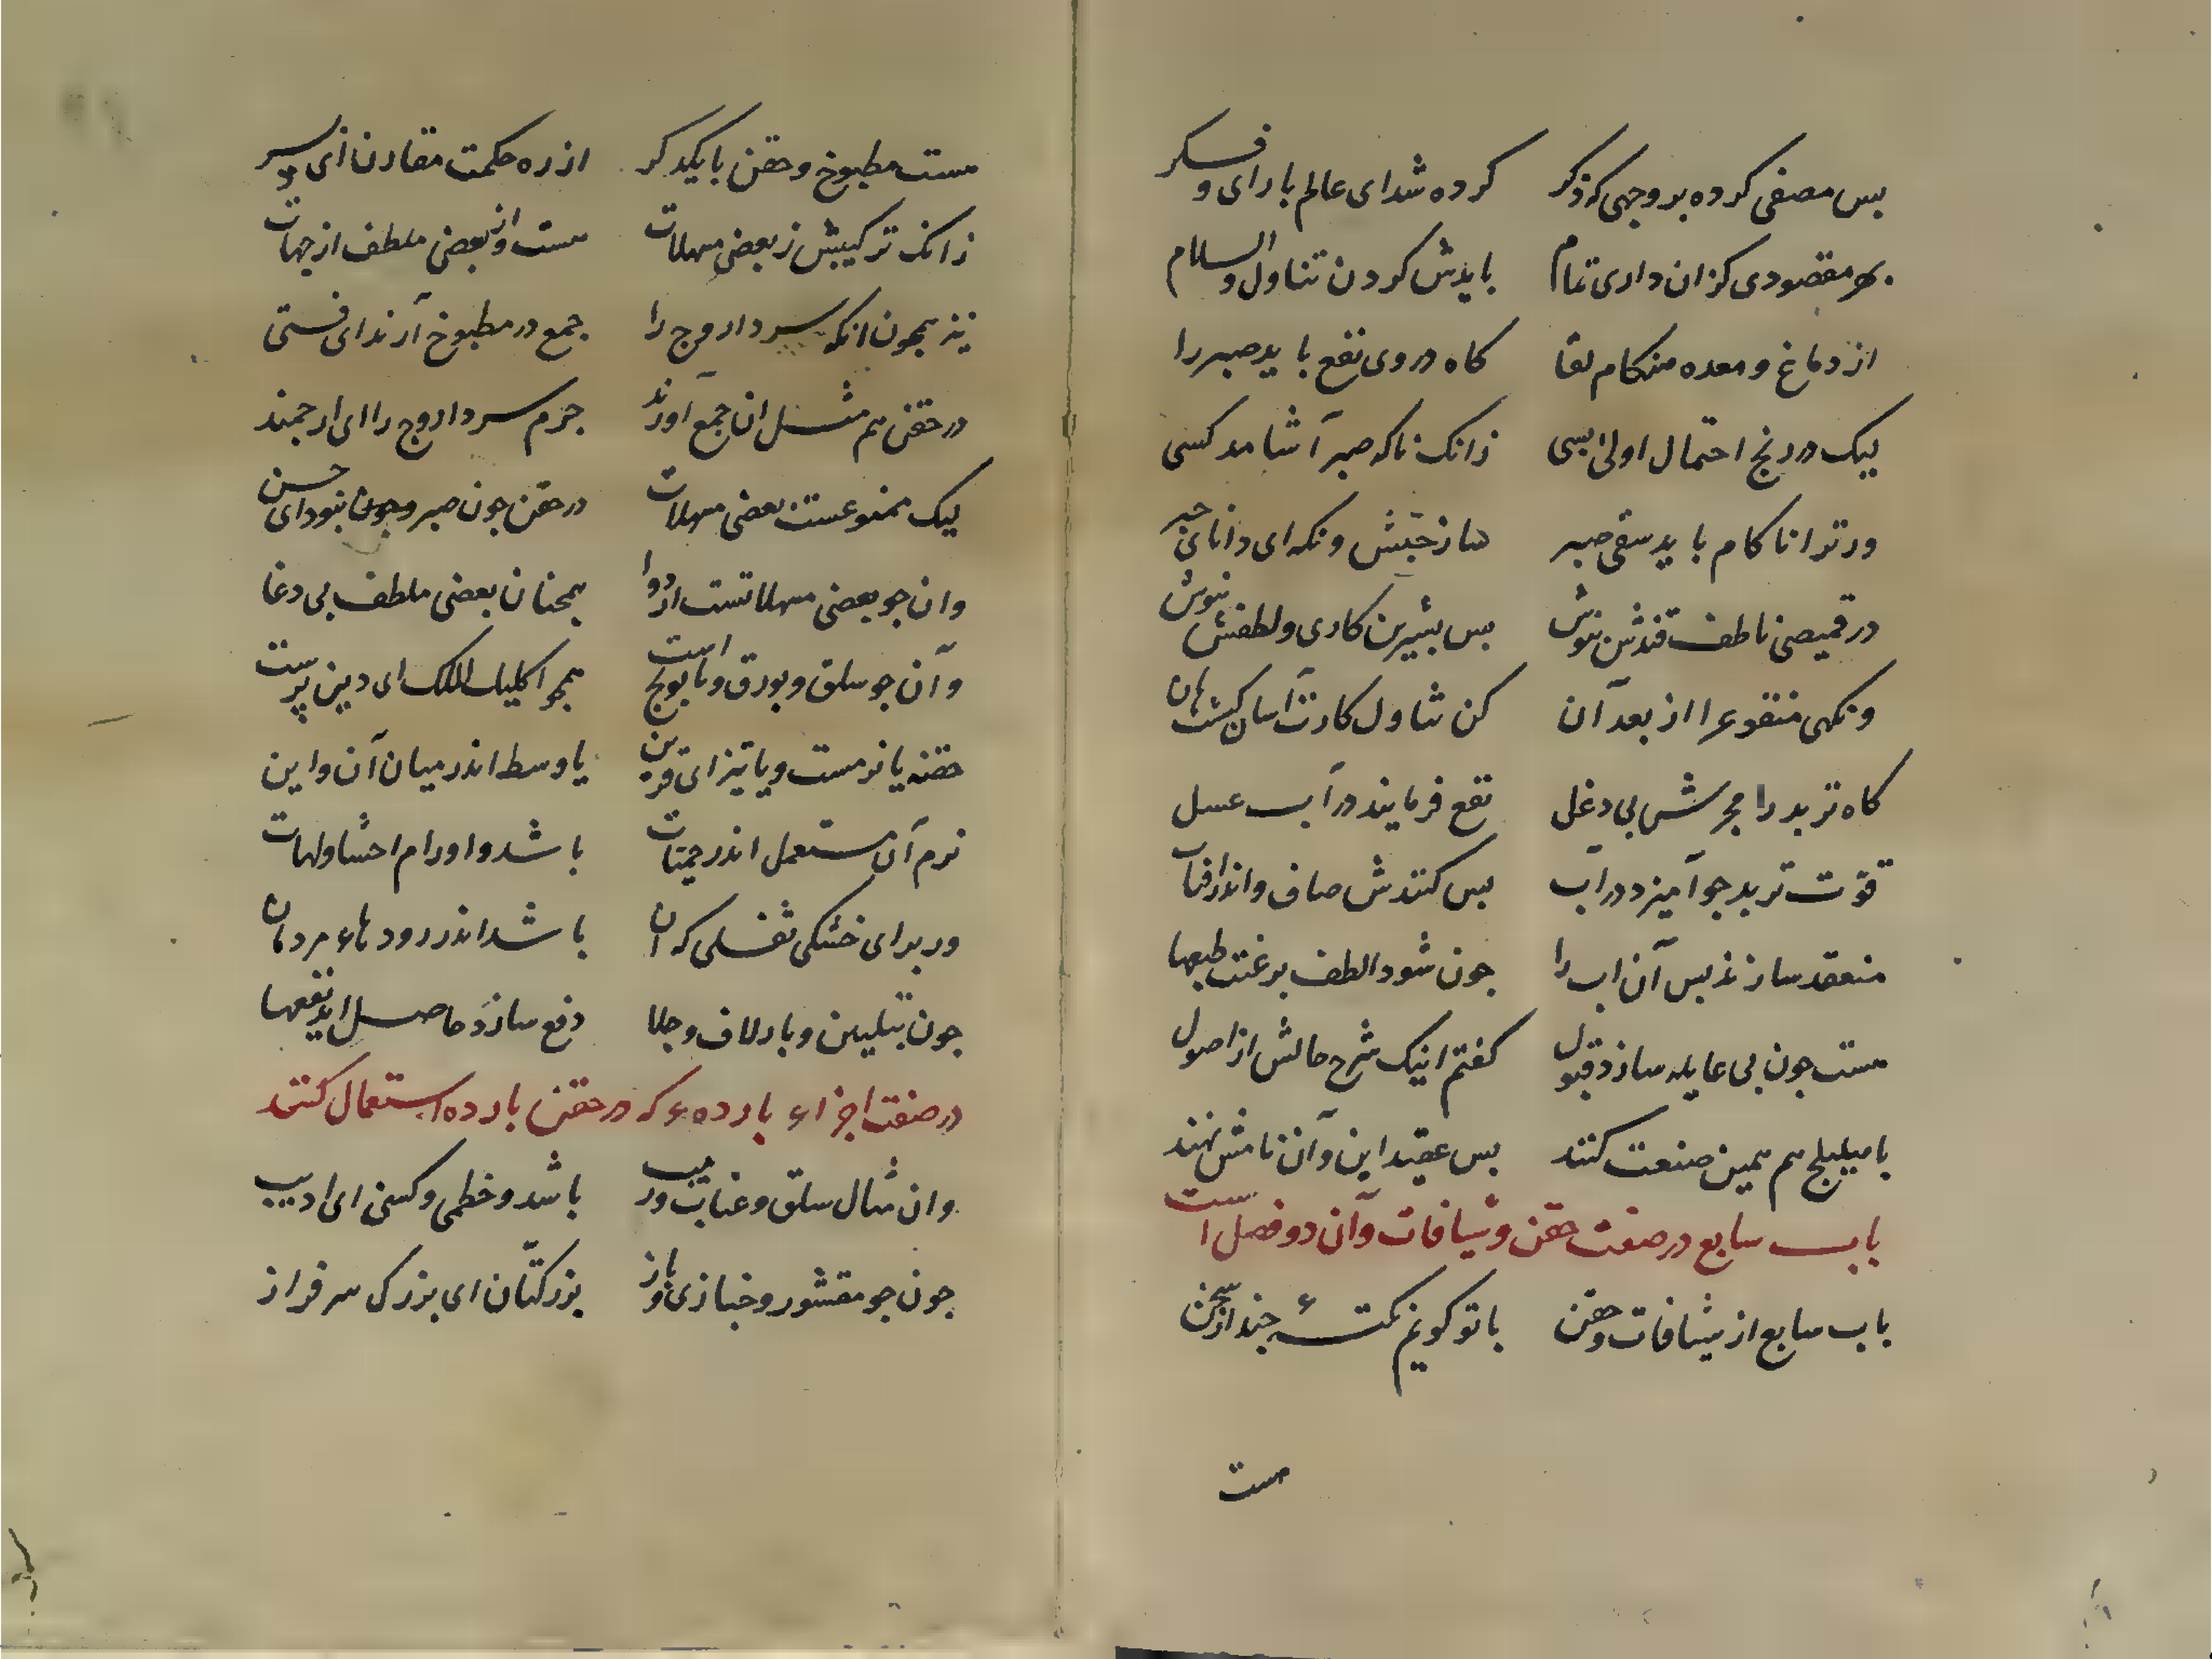 بس مصفی کرده بر وجهی که ذکر کرده شد ای عالم با رای و فکر
بهر مقصودی کزان داری تمام بایدش کردن تناول والسلام
از دماغ و معده هنکام نقا کاه در وی نقع باید صبر را
لیک در رنج احتمال اولی بسی زانک ناکه صبر آشامد کسی
ور ترا ناکام باید سقی صبر ساز حبش ونکه ای دانای حبر
در قمیصی ناطف قندش بپوش بس بشیرین کاری و لطفش بنوش
ونکهی منقوع را از بعد آن کن تناول کارت آسان کشت هان
کاه تربد را مجرش بی دغل نقع فرمایند در آب عسل
قوّت تربد جو آمیزد در آب بس کنندش صاف و اندر آفتاب
منعقد سازند بس آن اب را جون شود الطف برغبت طبعها
هست جون بی غایله سازد قبول کفتم اینک شرح حالش از اصول
با هلیلج هم همین صنعت کنند بس عقید این و آن نامش نهند
باب سابع در صفت حقن و شیافات و آن دو فصل است
باب سابع از شیافات و حقن با تو کویم نکتهٔ جند از سخن
هست
هست مطبوخ و حقن با یکدکر از ره حکمت مقارن ای پسر
زانک ترکیبش ز بعضی مسهلات هست و از بعضی ملطف از جهات
نیز همجون انکه سرد اروج را جمع در مطبوخ آرند ای فتی
در حقن هم مثل ان جمع آورند جرم سرد اروج را ای ارجمند
لیک ممنوعست بعضی مسهلات در حقن جون صبر و جون بنود ای حسن
وان جو بعضی مسهلاتست از دوا همجنان بعضی ملطف بی دغا
و آن جو سلق و بورق و بابونج است همجو اکلیل الملک ای دین پرست
حقنه یا نرمست و یا تیز ای قرین یا وسط اندر میان آن و این
نرم آن مستعمل اندر حمیات باشد و اورام احشا و لهات
ور برای خشکی ثفلی که ان باشد اندر رودهاء مردمان
جون بتلیین و بازلاق و جلا دفع سازد حاصل اید نفعها
در صفت اجزاء بارده‌ء که در حقن بارده استعمال کنند
وان مثال سلق و عناب و زبیب باشد و خطمی و کسنی ای ادیب
جون جو مقشور و خبازی و باز بزر کتّان ای بزرک سرفراز